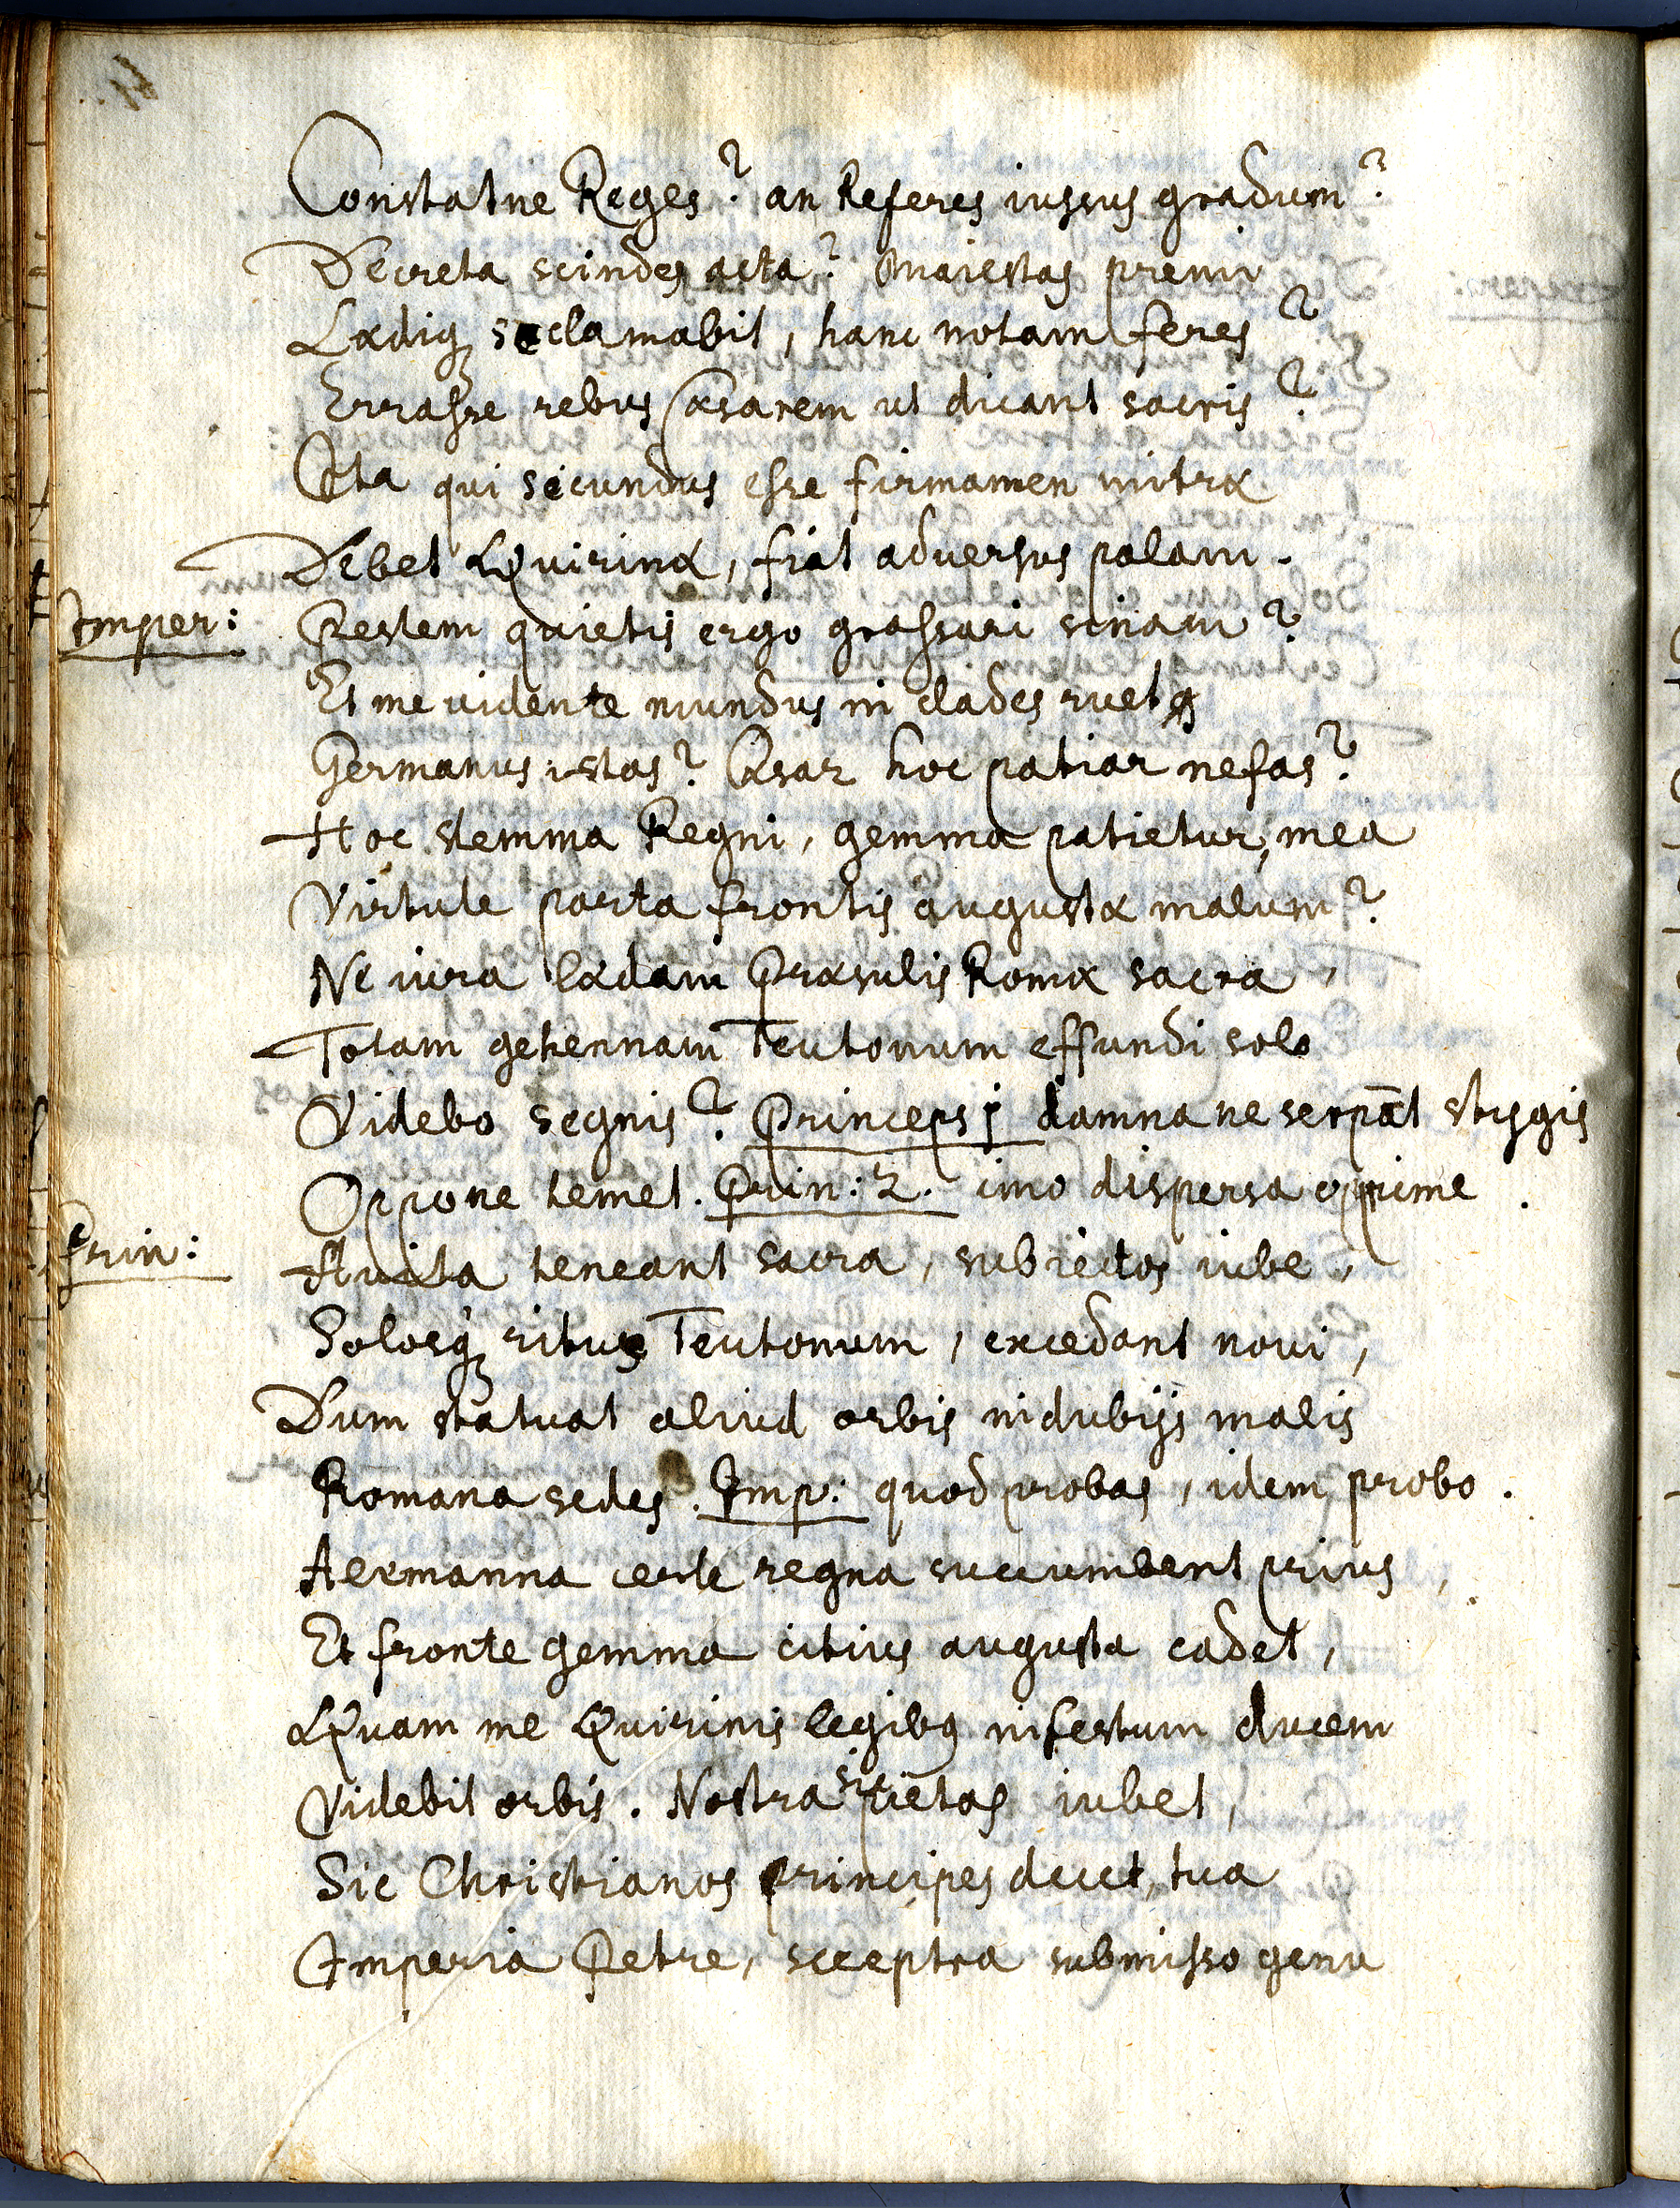 Constatne Reges? an Referes iussus gradum?
Decreta scindes acta? Maiestas premi
Lædiq; se clamabit, hanc notam feres?
Errasse rebus Cæsarem ut dicant sacris?
Ita qui secundus esse firmamen mitræ
Debet Quirinæ, fiat adversus palam.
Imper: Pestem quietis ergo grassari sinam?
Et me vidente mundus in clades ruet
Germanus istas? Cæsar hoc patiar nefas?
Hoc stemma Regni, gemma patietur, mea
Virtute parta frontis augustæ malum?
Ne iura lædam Præsulis Romæ sacra,
Totam gehennam Teutonum effundi solo
Videbo segnis? Princeps 1 damna ne serpāt stygis
Oppone temet. Prin: 2. imo dispersa opprime.
Prin: Avita teneant sacra, subiectos iube,
Solosq; ritus Teutonum, excedant novi,
Dum statuat aliud orbis in dubijs malis
Romana sedes. Imp: quod probas, idem probo.
Hermanna certe regna succumbent prius,
Et fronte gemma citius augusta cadet,
Quam me Quirinis legibus infestum ducem
Videbit orbis. Nostra sic pietas iubet,
Sic Christianos principes decet, tua
Imperia Petre, sceptra submisso genu